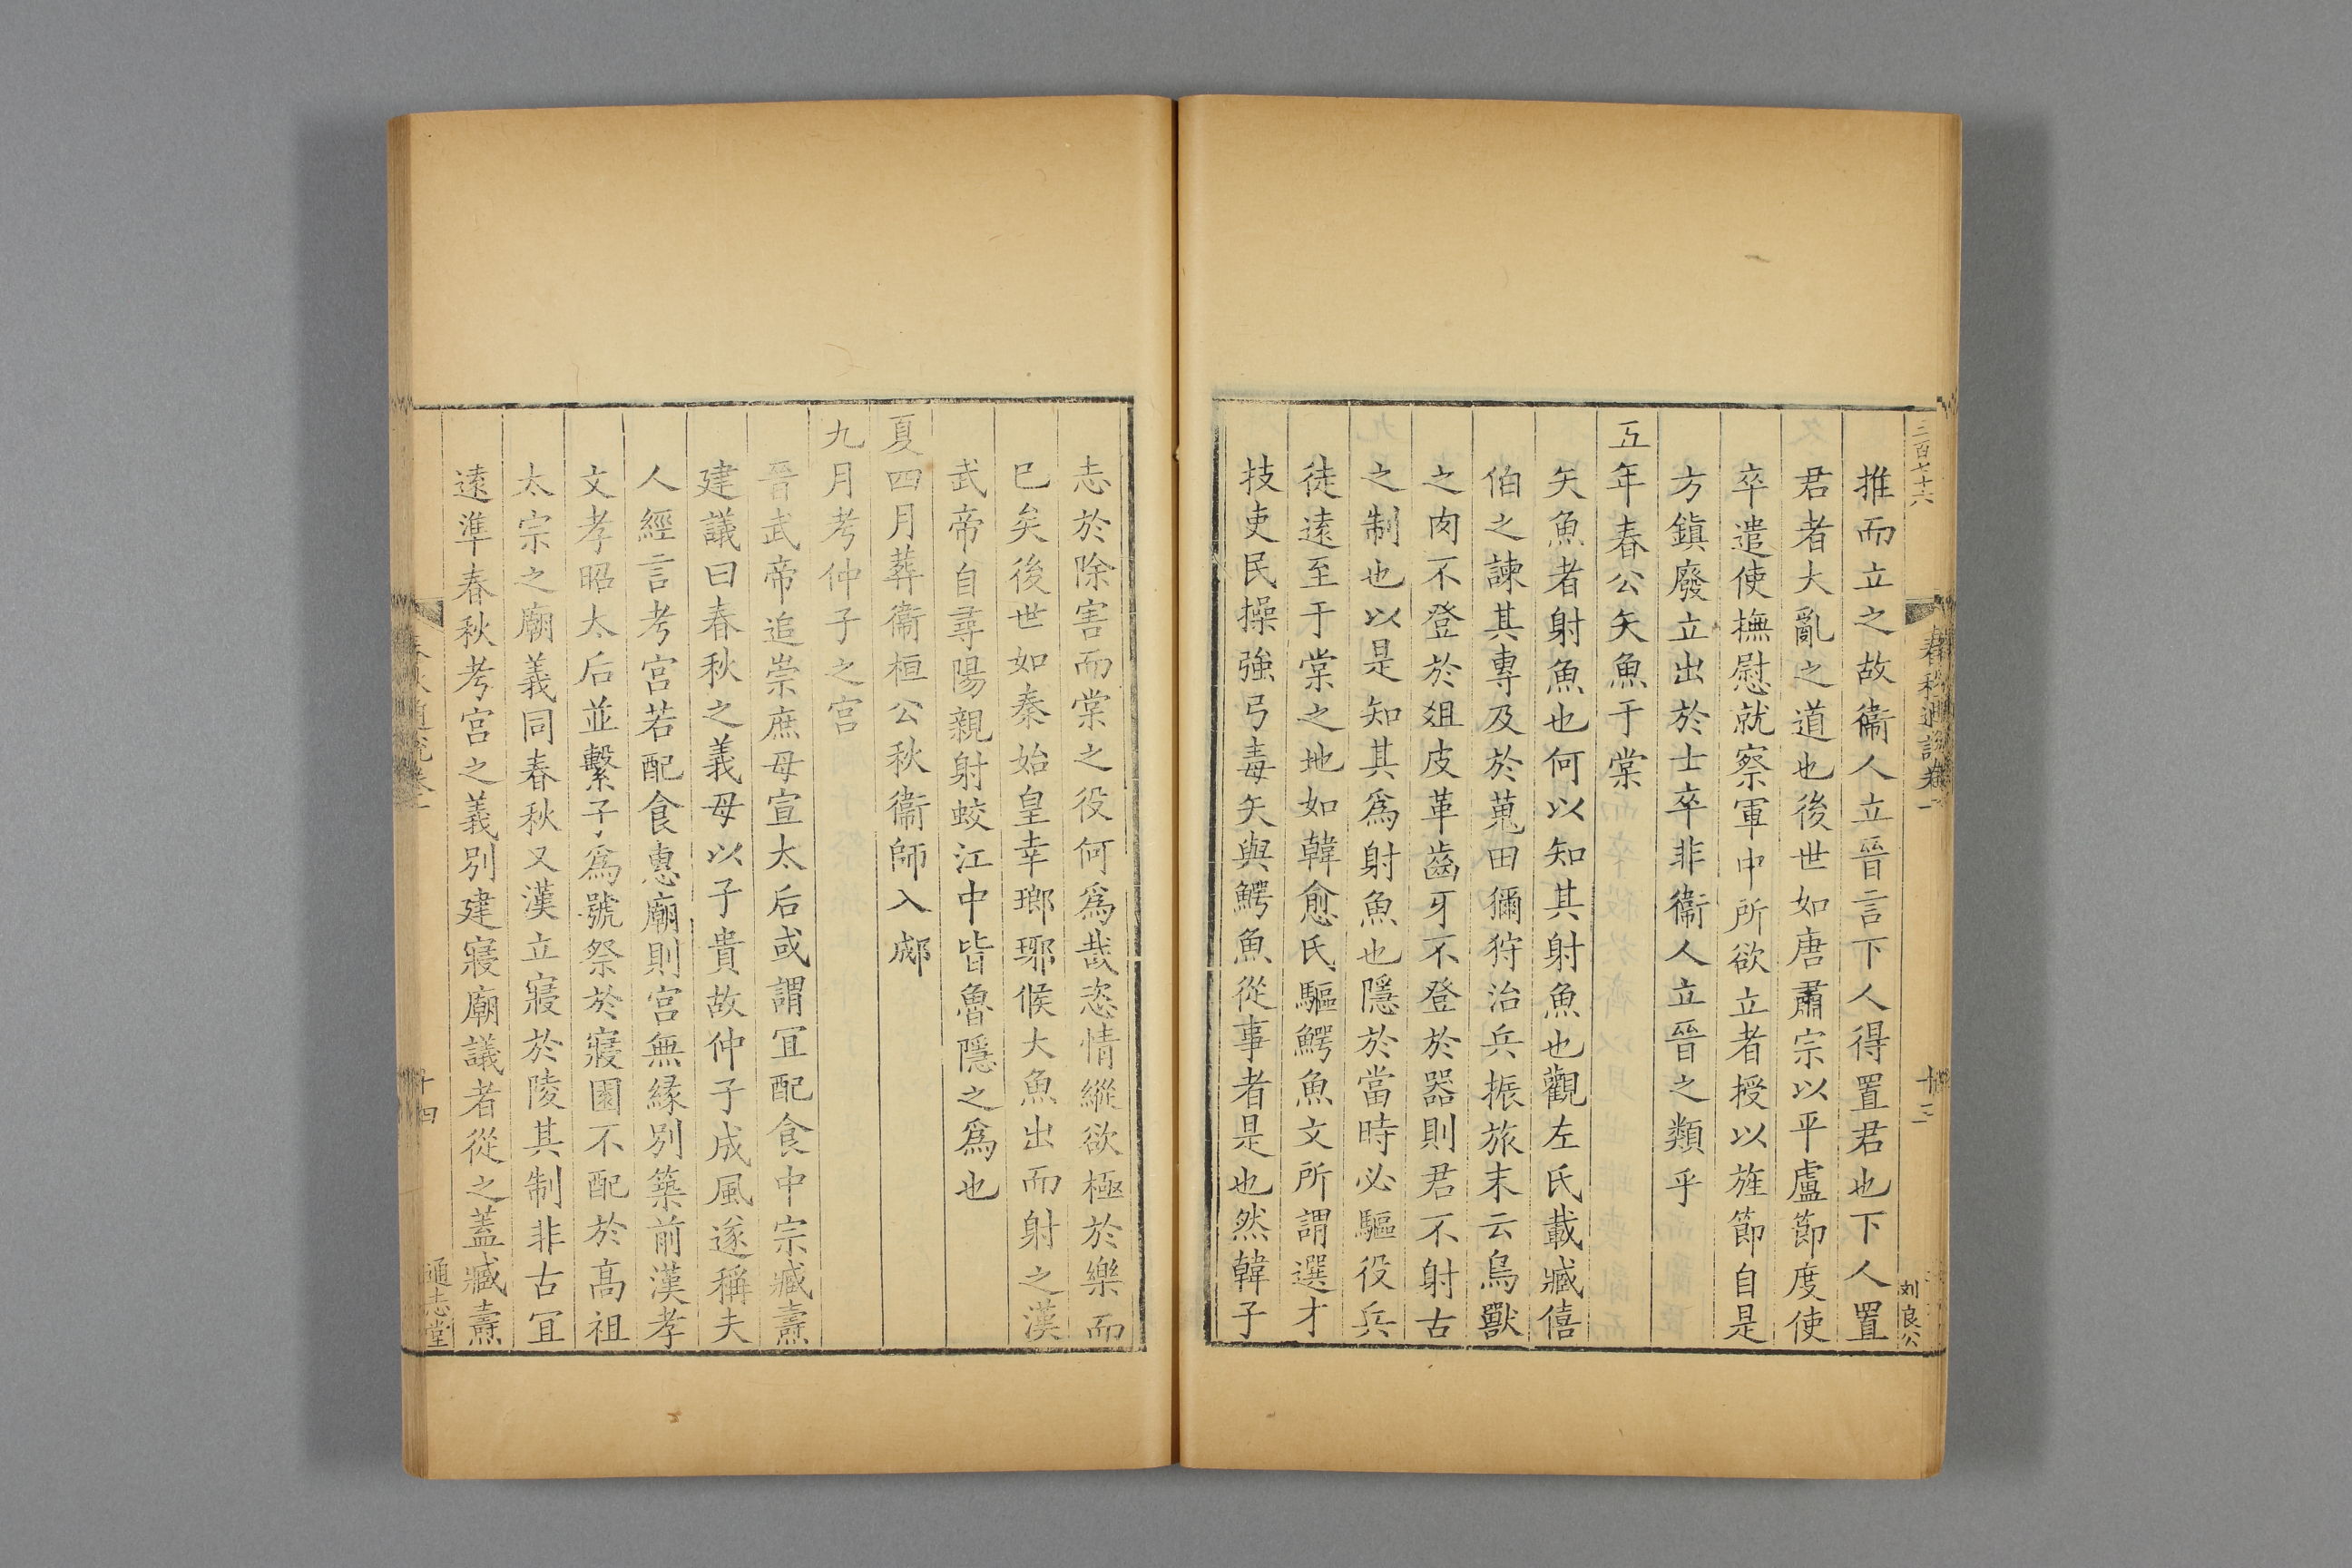 三百七十六
春秋通說卷一
十三
刘良公
推而立之故衞人立晉言下人得置君也下人置
君者大亂之道也後世如唐肅宗以平盧節度使
卒遣使撫慰就察軍中所欲立者授以旌節自是
方鎭廢立出於士卒非衞人立晉之類乎
五年春公矢魚于棠
矢魚者射魚也何以知其射魚也觀左氏載臧僖
伯之諫其專及於蒐田獮狩治兵振旅末云鳥獸
之肉不登於俎皮革齒牙不登於器則君不射古
之制也以是知其爲射魚也隱於當時必驅役兵
徒遠至于棠之地如韓愈氏驅鰐魚文所謂選才
技吏民操強弓毒矢與鰐魚從事者是也然韓子
志於除害而棠之役何爲哉恣情縱欲極於樂而
已矣後世如秦始皇幸瑯琊候大魚出而射之漢
武帝自尋陽親射蛟江中皆魯隱之爲也
夏四月葬衞桓公秋衞師入郕
九月考仲子之宮
晉武帝追崇庶母宣太后或謂冝配食中宗臧燾
建議曰春秋之義母以子貴故仲子成風遂稱夫
人經言考宮若配食惠廟則宮無緣別築前漢孝
文孝昭太后並繫子爲號祭於寢園不配於高祖
太宗之廟義同春秋又漢立寢於陵其制非古冝
遠準春秋考宮之義別建寢廟議者從之蓋臧燾
春秋通說卷一
十四
通志堂